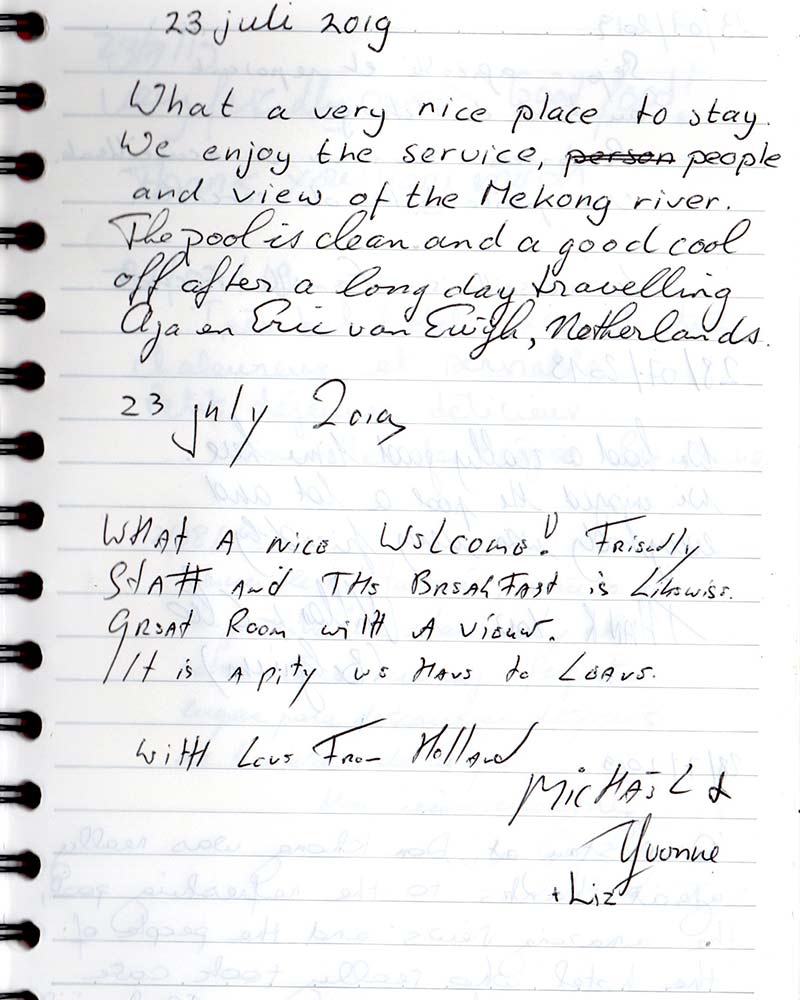 23 juli 2019
What a very nice place to stay.
We enjoy the service, person people
and view of the Mekong river.
The pool is clean and a good cool
off after a long day travelling
Aja en Eric van Ewijk, Netherlands.
23 july 2019
What a nice Welcome! Friendly
Staff and The Breakfast is Likewise.
Great Room with A Vieuw.
It is a pity we Have to Leave.
With Love From Holland
Michaël &
Yvonne
+ Liz